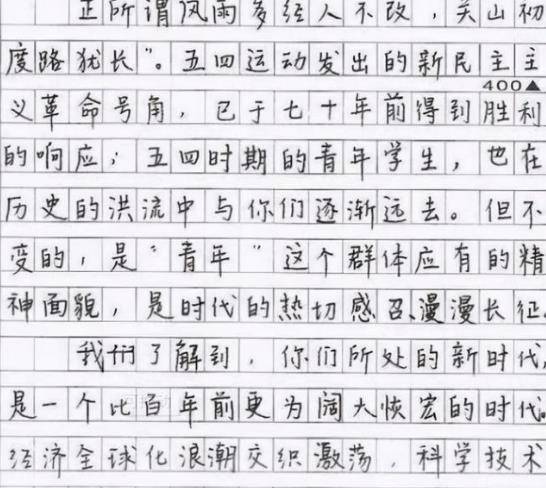 正所谓风雨多经人不改，关山初
度路犹长"。五四运动发出的新民主主
400▲
义革命号角，已于七十年前得到胜利
的响应；五四时期的青年学生，也在
历史的洪流中与你们逐渐远去。但不
变的，是"青年"这个群体应有的精
神面貌，是时代的热切感召、漫漫长征。
我们了解到，你们所处的新时代，
是一个比百年前更为阔大恢宏的时代。
经济全球化浪潮交织激荡，科学技术